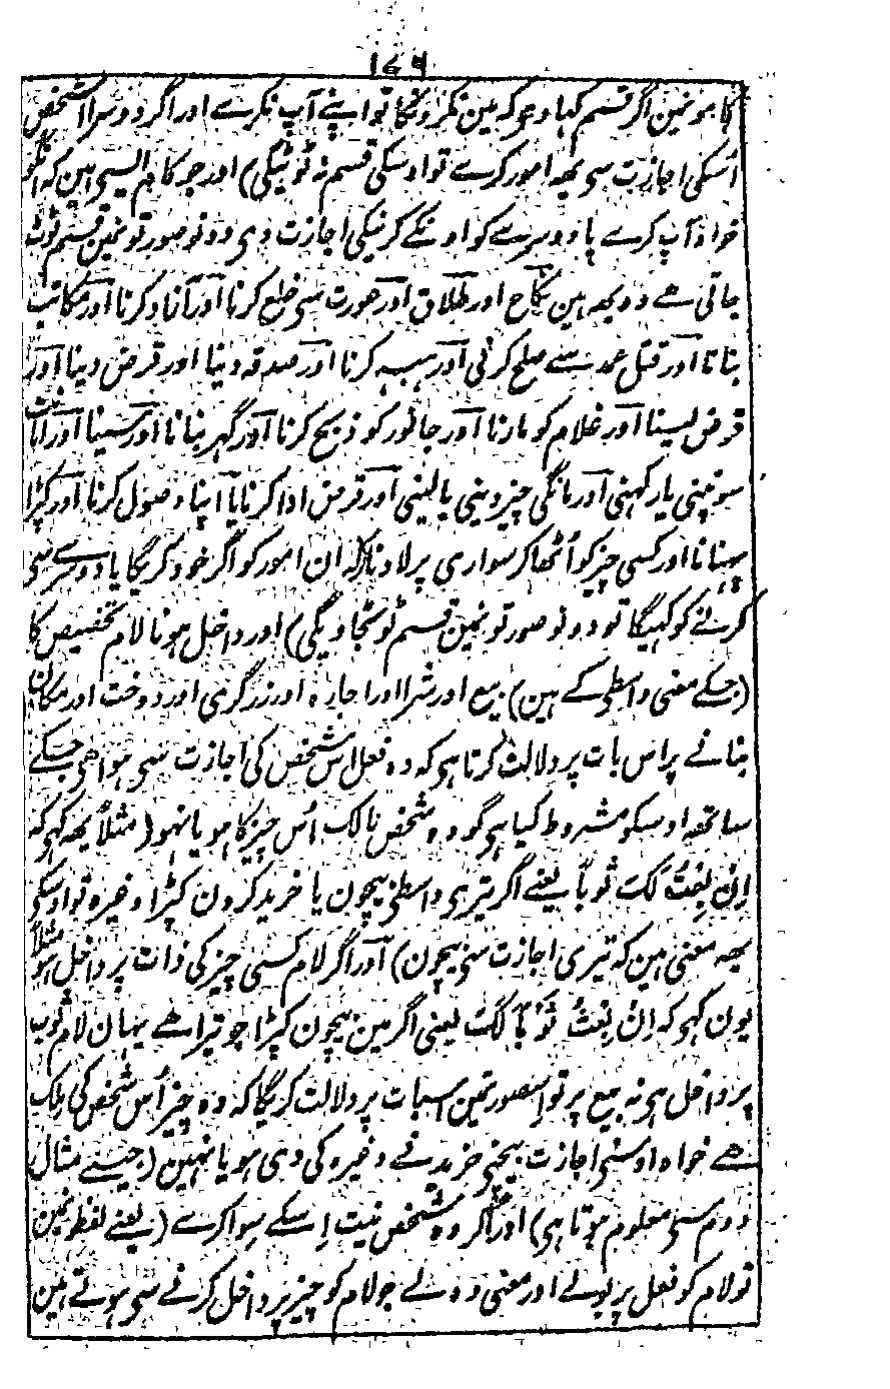 ۱۷۹
کامونمین اگر قسم کہا وے کہ مین نکرونگا تو اپنے آپ نکرے اور اگر دوسرا شخص
اُسکی اجازت سی یھہ امور کرے تو اوسکی قسم نہ ٹوٹیگی) اور جو کام ایسی ہین کہ انکو
خواہ آپ کرے یا دوسرے کو اونکے کرنیکی اجازت دی دونو صورتونمین قسم ٹوٹ
جاتی ھے وہ یھہ ہین نکاح اور طلاق اور عورت سی خلع کرنا اور آزاد کرنا اور مکاتب
بنانا اور قتل عمد سے صلح کرنی اور ہبہ کرنا اور صدقہ دینا اور قرض دینا اور
قرض لینا اور غلام کو مارنا اور جانور کو ذبح کرنا اور گہر بنانا اور سینا اور امانت
سونپنی یا رکہنی اور مانگی چیز دینی یا لینی اور قرض ادا کرنا یا اپنا وصول کرنا اور کپڑا
پہنانا اور کسی چیز کو اُٹھا کر سواری پر لادنا کہ ان امور کو اگر خود کریگا یا دوسرے سی
کرنے کو کہیگا تو دونو صورتونمین قسم ٹوٹ جاویگی) اور داخل ہونا لام تخصیص کا
(جسکے معنی واسطی کے ہین) بیع اور شرا اور اجارہ اور زرگری اور دوخت اور مکان
بنانے پر اس بات پر دلالت کرتا ہی کہ وہ فعل اس شخص کی اجازت سی ہوا ھی جسکے
ساتھہ اوسکو مشروط کیا ہی گو وہ شخص مالک اُس چیز کا ہو یا نہو (مثلاً یھہ کہی کہ
اِنْ بِعْتُ لَکَ ثَوباً یعنے اگر تیری واسطی بیچون یا خرید کرون کپڑا وغیرہ تو اوسکی
یھہ معنی ہین کہ تیری اجازت سی بیچون) اور اگر لام کسی چیز کی ذات پر داخل ہو مثلاً
یون کہی کہ اِنْ بِعْتُ ثَوْباً لَکَ یعنی اگر مین بیچون کپڑا جو تیرا ھے یہان لام ثوب
پر داخل ہی نہ بیع پر تو اِسصورتمین اسبات پر دلالت کریگا کہ وہ چیز اُس شخص کی ملک
ھے خواہ اوسنی اجازت بیچنی خریدنے وغیرہ کی دی ہو یا نہین (جیسے مثال
دوم سی معلوم ہوتا ہی) اور اگر وہ شخص نیت اِسکے سوا کرے (یعنے لفظونمین
تو لام کو فعل پر بولے اور معنی وہ لے جو لام کو چیز پر داخل کرنے سی ہوتے ہین